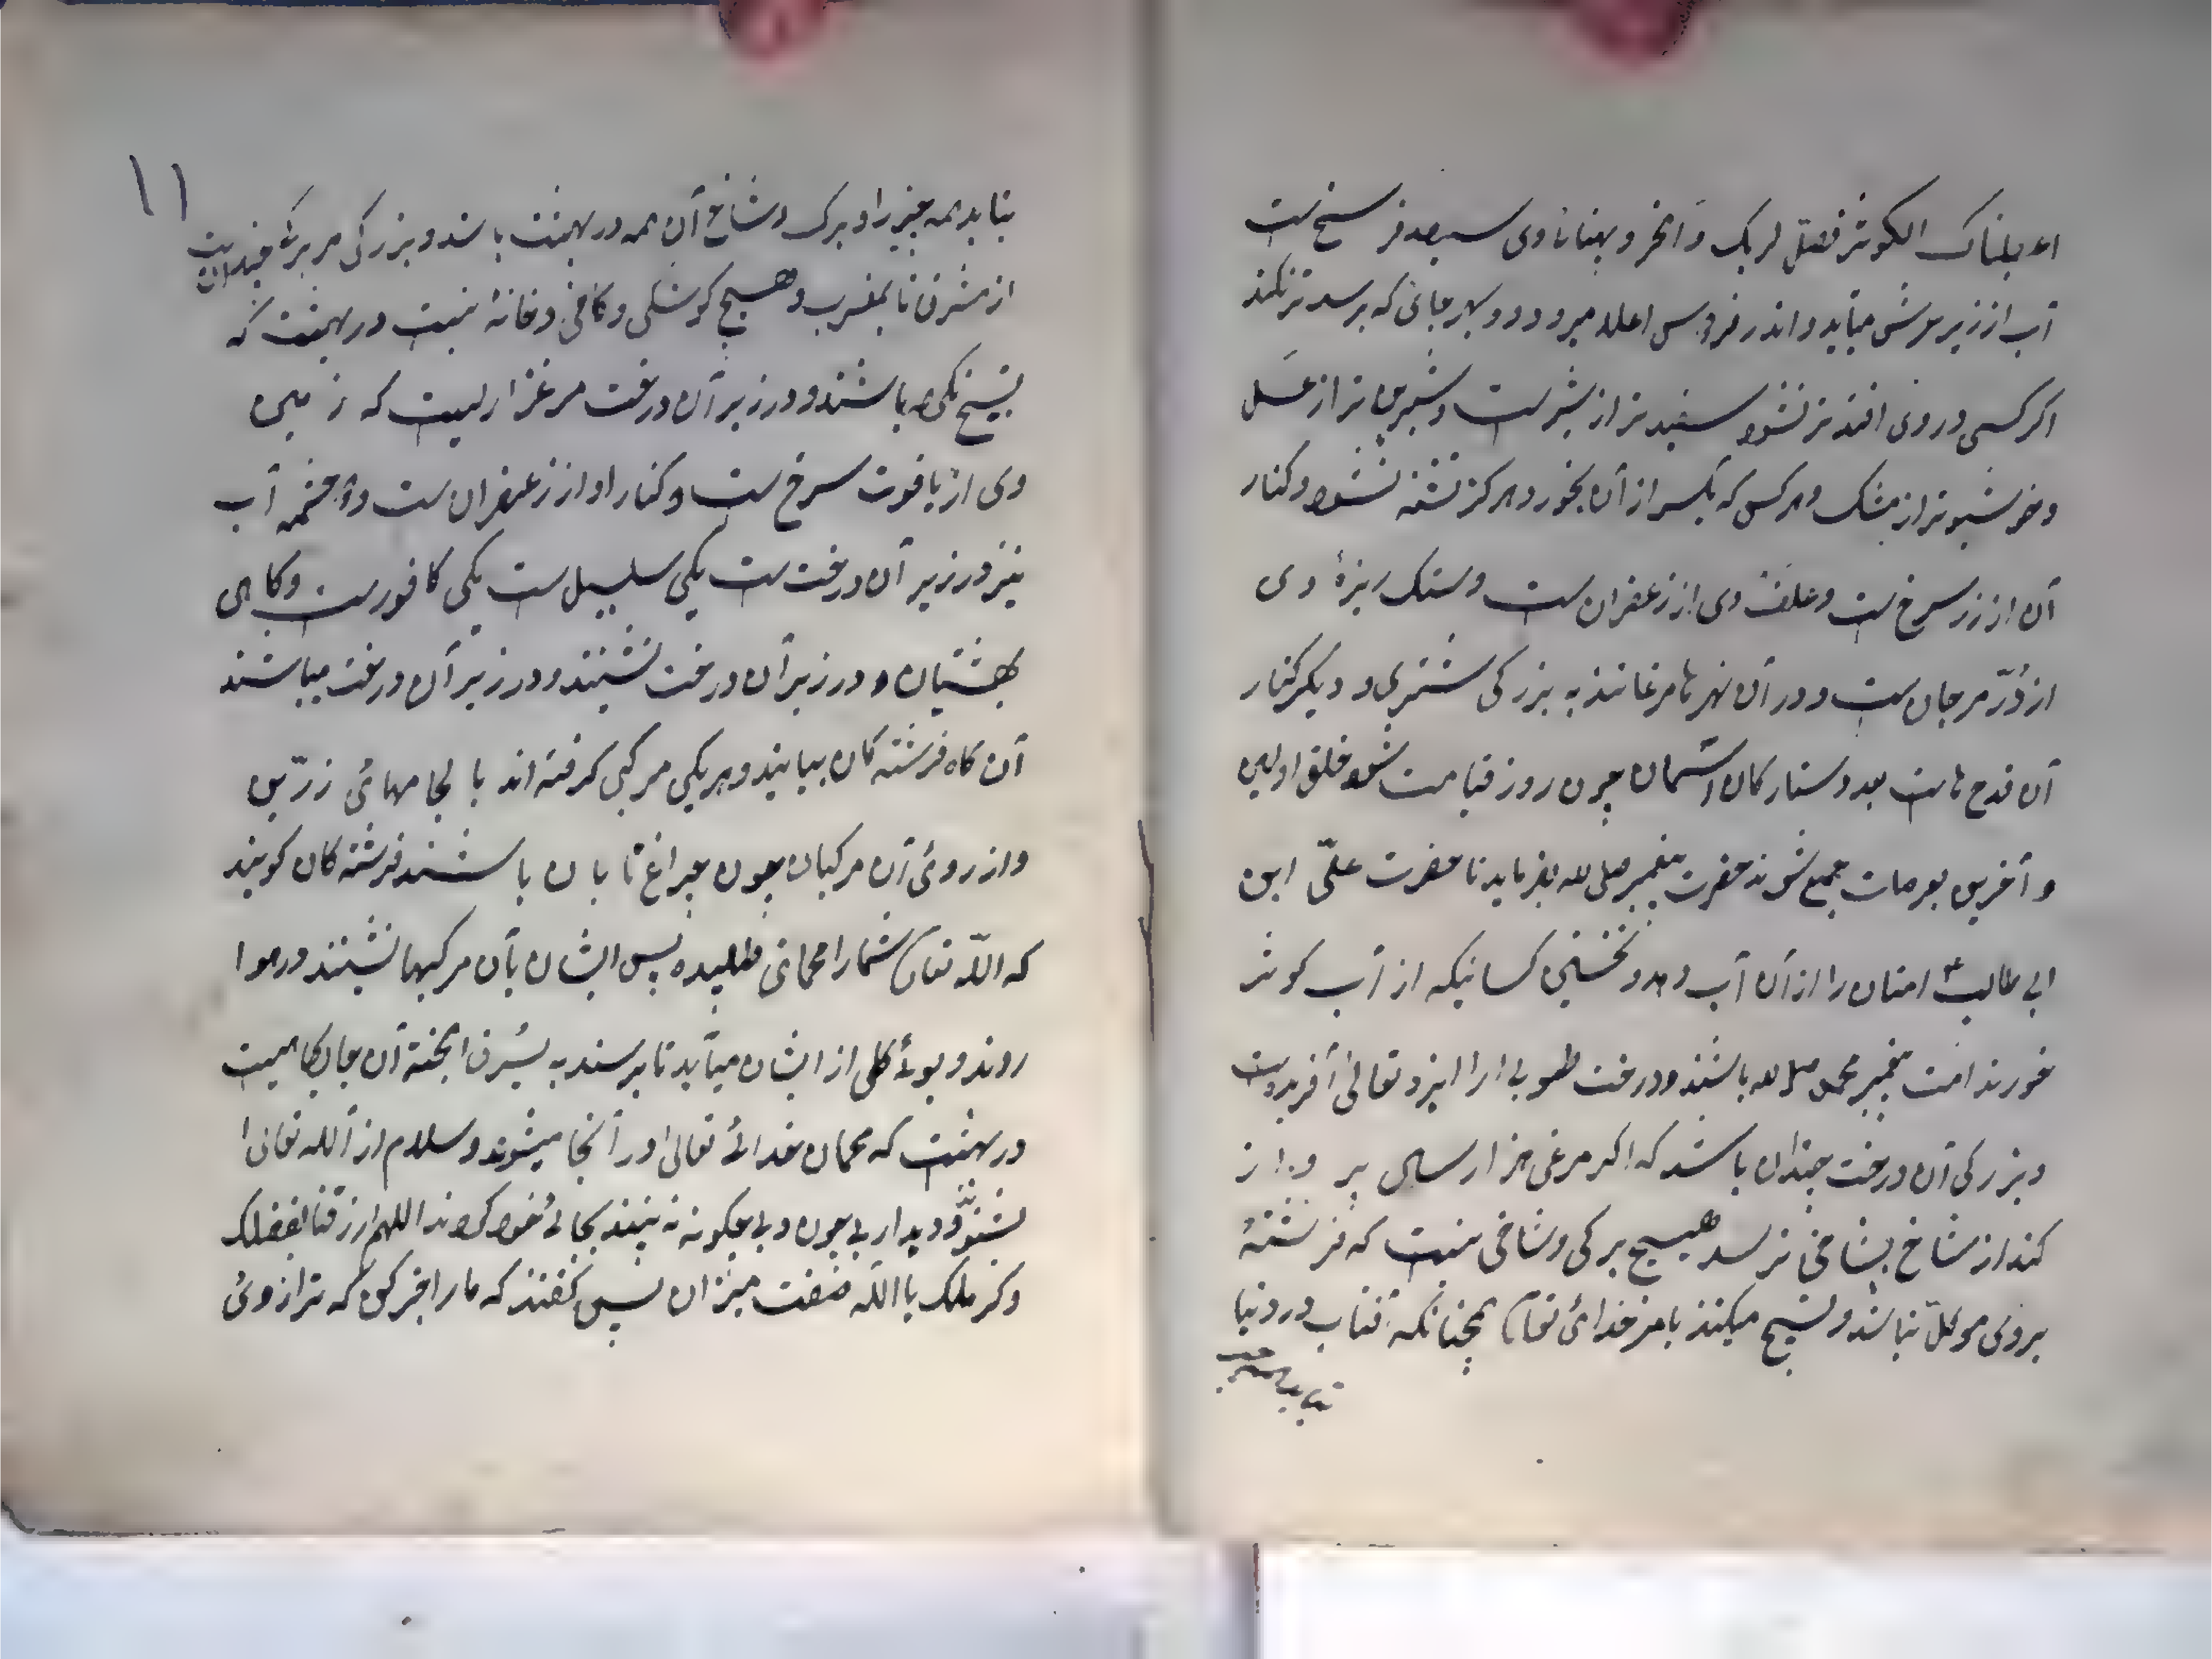 اعطیناک الکوثر فصل لربک و انحر و پهنانای وی سیصد فرسخ است
آب از زیر عرش میآید و اندر فردوس اعلاء میرود و بهر جائی که برسد تر نکند
اکر کسی در وی افتد تر نشود سفید تر از شیر است و شیرین تر از عسل
و خوشبو تر از مشک و هر کس که یکسر از آن بخورد هرکز تشنه نشود و کنار
آن از زر سرخ است و علف وی از زعفران است و سنک ریزهٔ وی
از دُرّ مرجان است و در آن نهر ها مرغانند به بزرکی شتری و دیکر کنار
آن قدح هاست بعدد ستارکان آسمان چون روز قیامت شود خلق اولین
و آخرین بعرصات جمیع شوند حضرت پیغمبر صلی الله بفرماید تا حضرت علیّ ابن
ابی طالب امتان را از آن آب دهد و نخستین کسانیکه از آب کوثر
خورند امت پیغمبر محمد صلی الله باشند و درخت طوبی ارا ایزد تعالی آفریده است
و بزرکی آن درخت چندان باشد که اکر مرغی هزار سال پرواز
کند از شاخ بشاخی نرسد هیچ برکی و شاخی نیست که فرشتهٔ
بروی موکل نباشد و تسبیح میکنند بامر خدائ تعالی همچنانکه آفتاب در دنیا
بتابد همه
۱۱
بتابد همه چیز را و برک و شاخ آن همه در بهشت باشد و بزرکی هر برک چندانست
از مشرق تا بمغرب و هیچ کوشکی و کاخی و خانهٔ نیست در بهشت که
تسبیح نکی باشند و در زیر آن درخت مرغزاریست که زمین
وی از یاقوت سرخ است و کنار او از زعفران است و دو چشمه آب
نیز در زیر آن درخت است یکی سلسبیل است یکی کافور است و کاهی
بهشتیان و در زیر آن درخت نشینند و در زیر آن درخت میباشند
آن کاه فرشته کان بیایند و هر یکی مرکبی کرفته اند با لجامهائ زرّین
و از روئ آن مرکبان چون چراغ تابان باشند فرشته کان کویند
که اللّه تعالی شما را مهمانی طلبیده پس ایشان بآن مرکبها نشینند در هوا
روند و بوئ کلی از ایشان میآید تا برسند به آن جایکاهیست
در بهشت که مهمان خدائ تعالی در آنجا میشوند و سلام از اللّه تعالی
بشنوند و دیدار بی چون و بی چکونه نه بینند بجائ خود کردند اللهم ارزقنا بفضلک
و کرمک یا اللّه صفت میزان پس کفتند که ما را خبر کن که ترازوئ